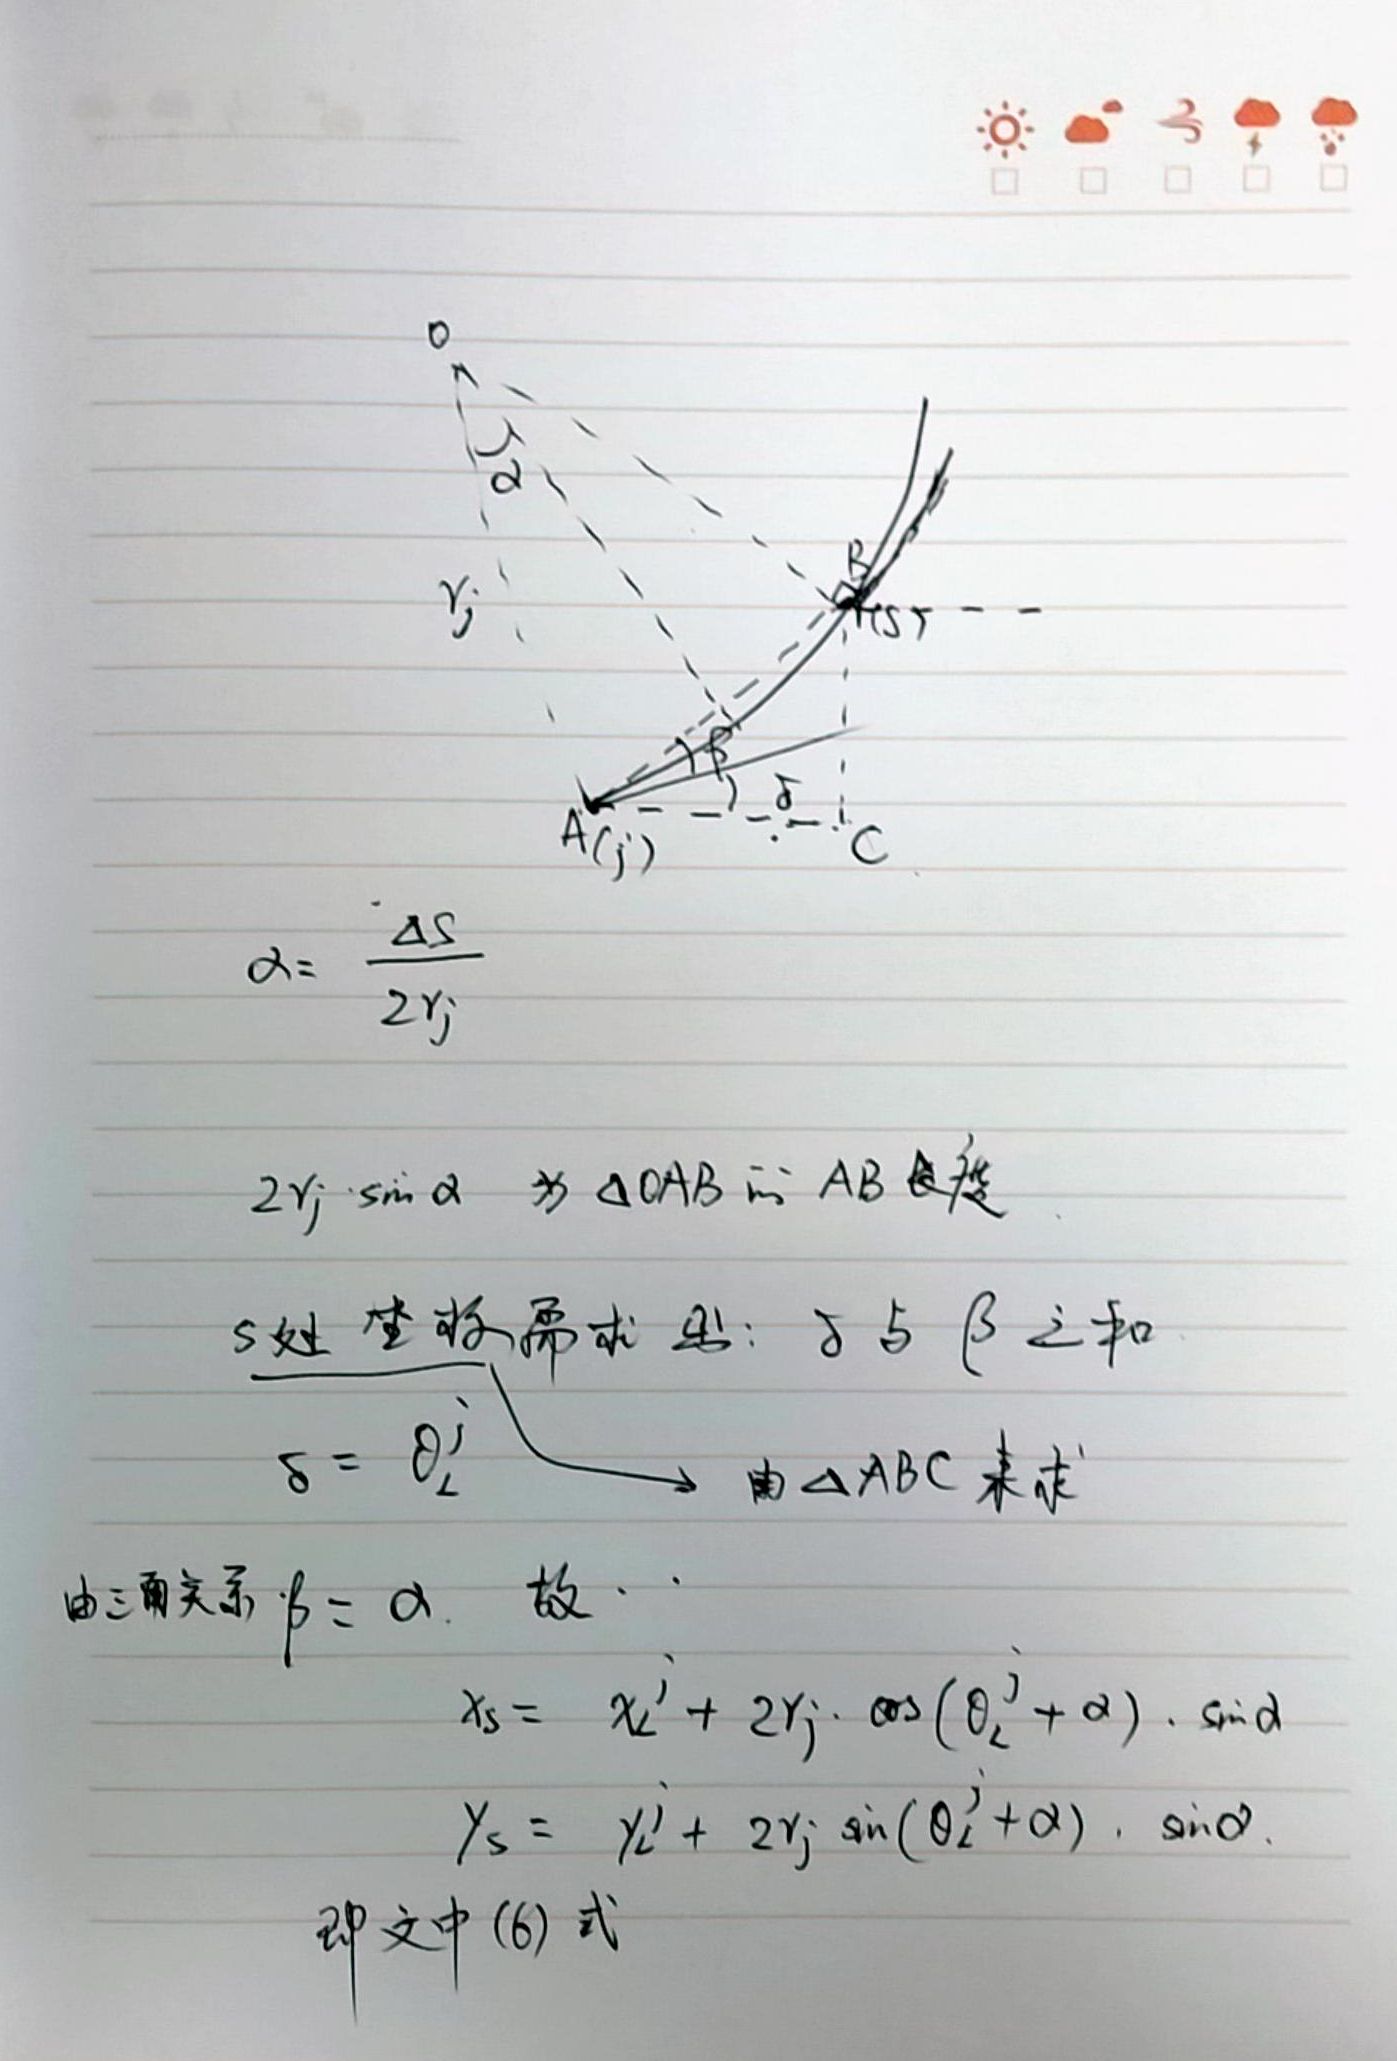 O
α
rj
B
(S)
β
δ
A(j)
C
α = ΔS / 2rj
2rj·sinα 为 ΔOAB 的 AB 长度
S处 坐标 需求出: δ 与 β 之和
δ = θ_L^j
由 ΔABC 来求
由三角关系 β = α. 故··
x_s = x_L^j + 2rj·cos(θ_L^j + α)·sinα
y_s = y_L^j + 2rj sin(θ_L^j + α)·sinα.
即文中(6)式